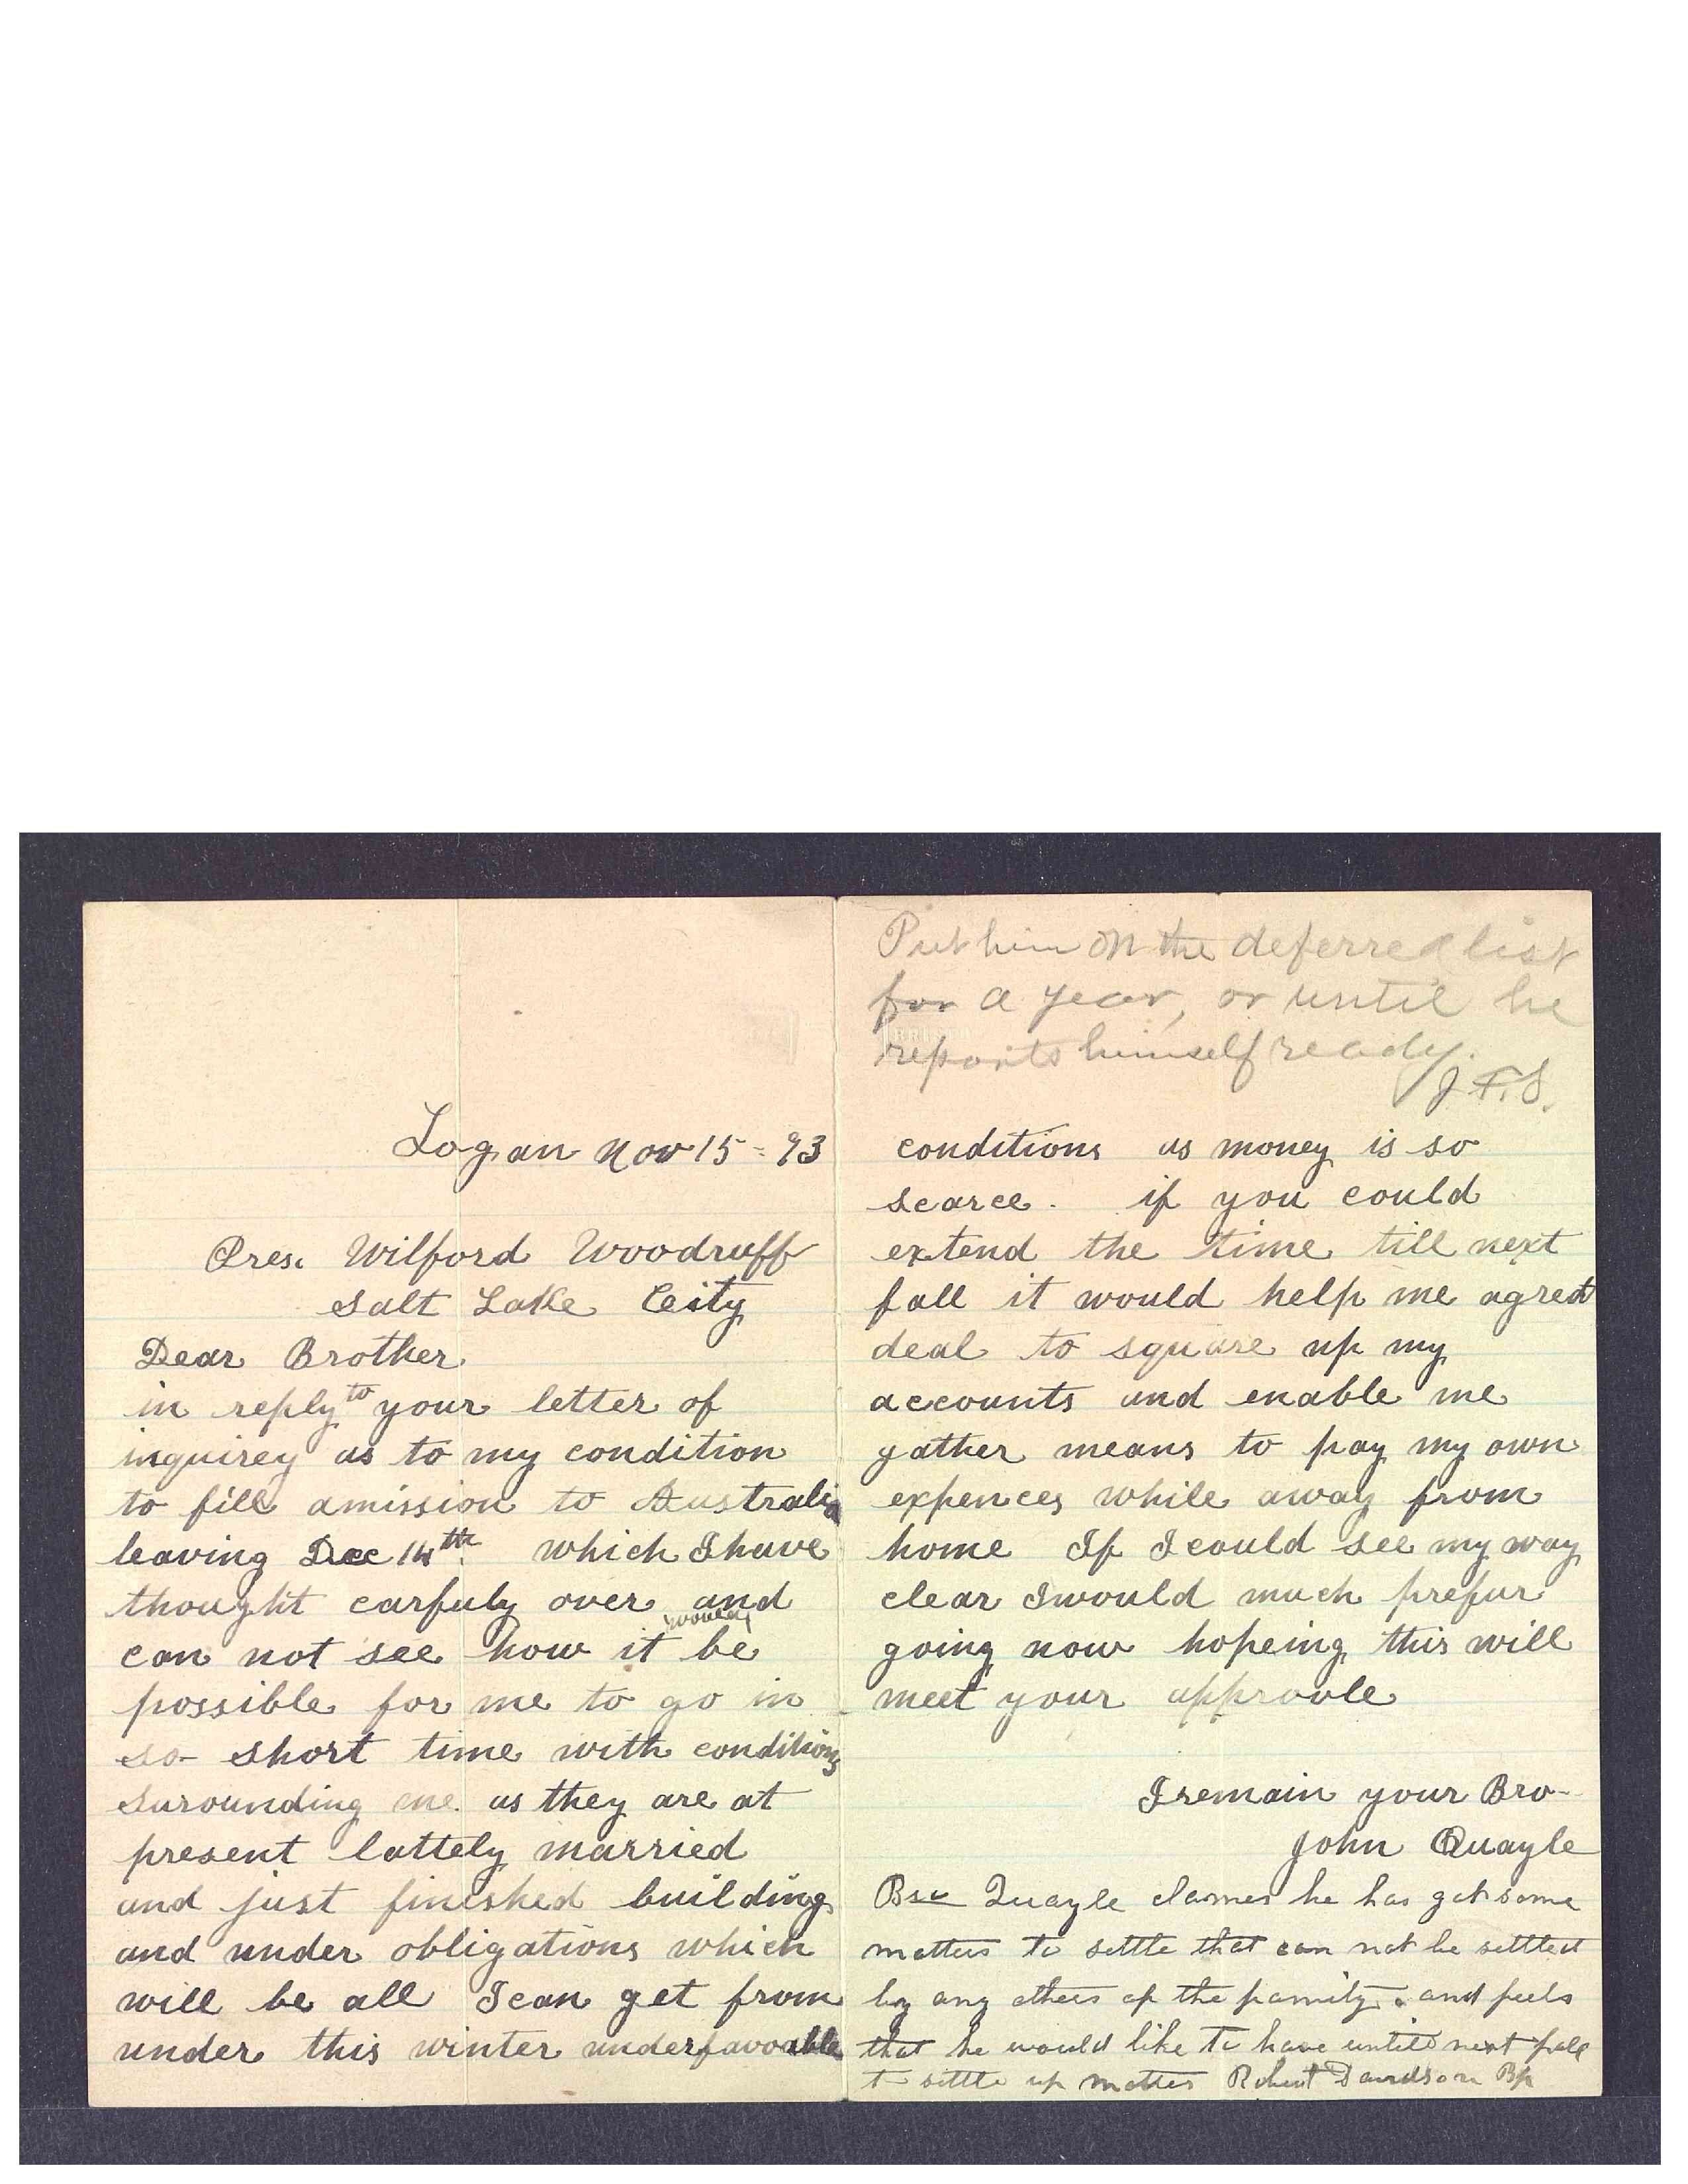 Logan Nov 15 - 93
Pres. Wilford Woodruff
Salt Lake City
Dear Brother
in reply to your letter of
inquirey as to my condition
to fill amission to Australia
leaving Dec 14th. which I have
thought carfuly over and
can not see how it would be
possible for me to go in
so short time with conditions
surounding me as they are at
present lattely married
and just finished building
and under obligations which
will be all I can get from
under this winter under favorable
Put him on the deferred list
for a year, or until he
reports himself ready.
J. F. S.
conditions as money is so
scarce. if you could
extend the time till next
fall it would help me agreat
deal to square up my
accounts and enable me
gather means to pay my own
expences while away from
home If I could see my way
clear I would much prefur
going now hopeing this will
meet your approvle
I remain your Bro-
John Quayle
Bro Quayle claimes he has got some
matters to settle that can not be settled
by any others of the family. and feels
that he would like to have untill next fall
to settle up matters Robert Davidson Bp